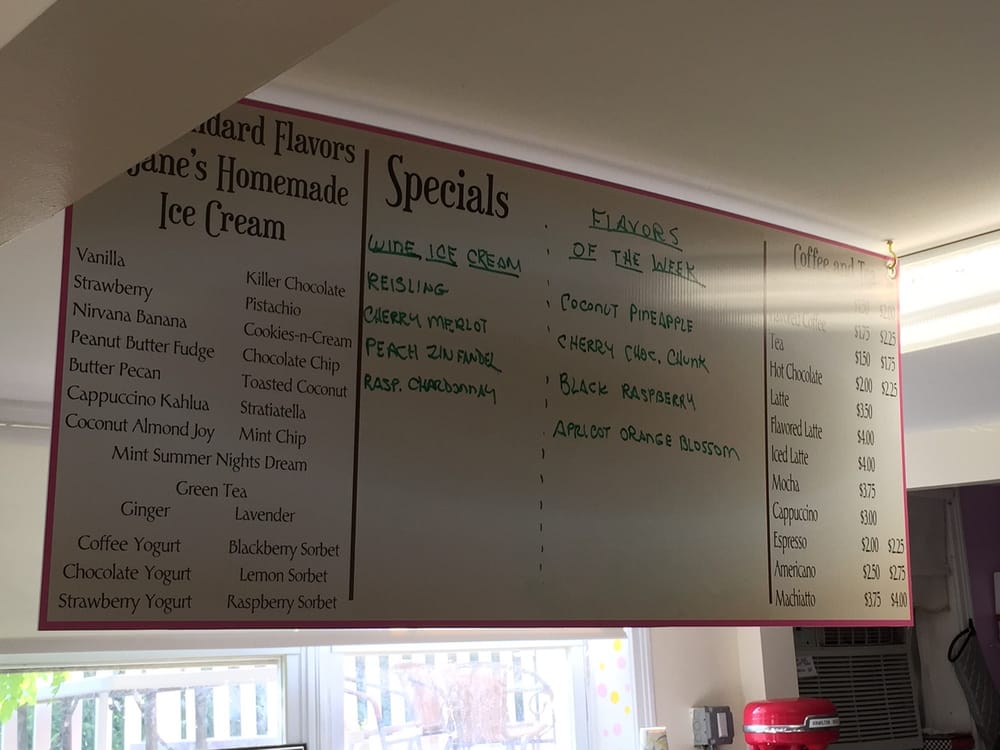 ndard Flavors
Jane's Homemade
Ice Cream
Vanilla
Strawberry
Nirvana Banana
Peanut Butter Fudge
Butter Pecan
Cappuccino Kahlua
Coconut Almond Joy
Killer Chocolate
Pistachio
Cookies-n-Cream
Chocolate Chip
Toasted Coconut
Stratiatella
Mint Chip
Mint Summer Nights Dream
Green Tea
Ginger Lavender
Coffee Yogurt Blackberry Sorbet
Chocolate Yogurt Lemon Sorbet
Strawberry Yogurt Raspberry Sorbet
Specials
WINE ICE CREAM
REISLING
CHERRY MERLOT
PEACH ZINFANDEL
RASP. CHARDONNAY
FLAVORS
OF THE WEEK
COCONUT PINEAPPLE
CHERRY CHOC. CHUNK
BLACK RASPBERRY
APRICOT ORANGE BLOSSOM
Coffee and
$2.00
Coffee $1.75 $2.25
Tea $1.50 $1.75
Hot Chocolate $2.00 $2.25
Latte $3.50
Flavored Latte $4.00
Iced Latte $4.00
Mocha $3.75
Cappuccino $3.00
Espresso $2.00 $2.25
Americano $2.50 $2.75
Machiatto $3.75 $4.00